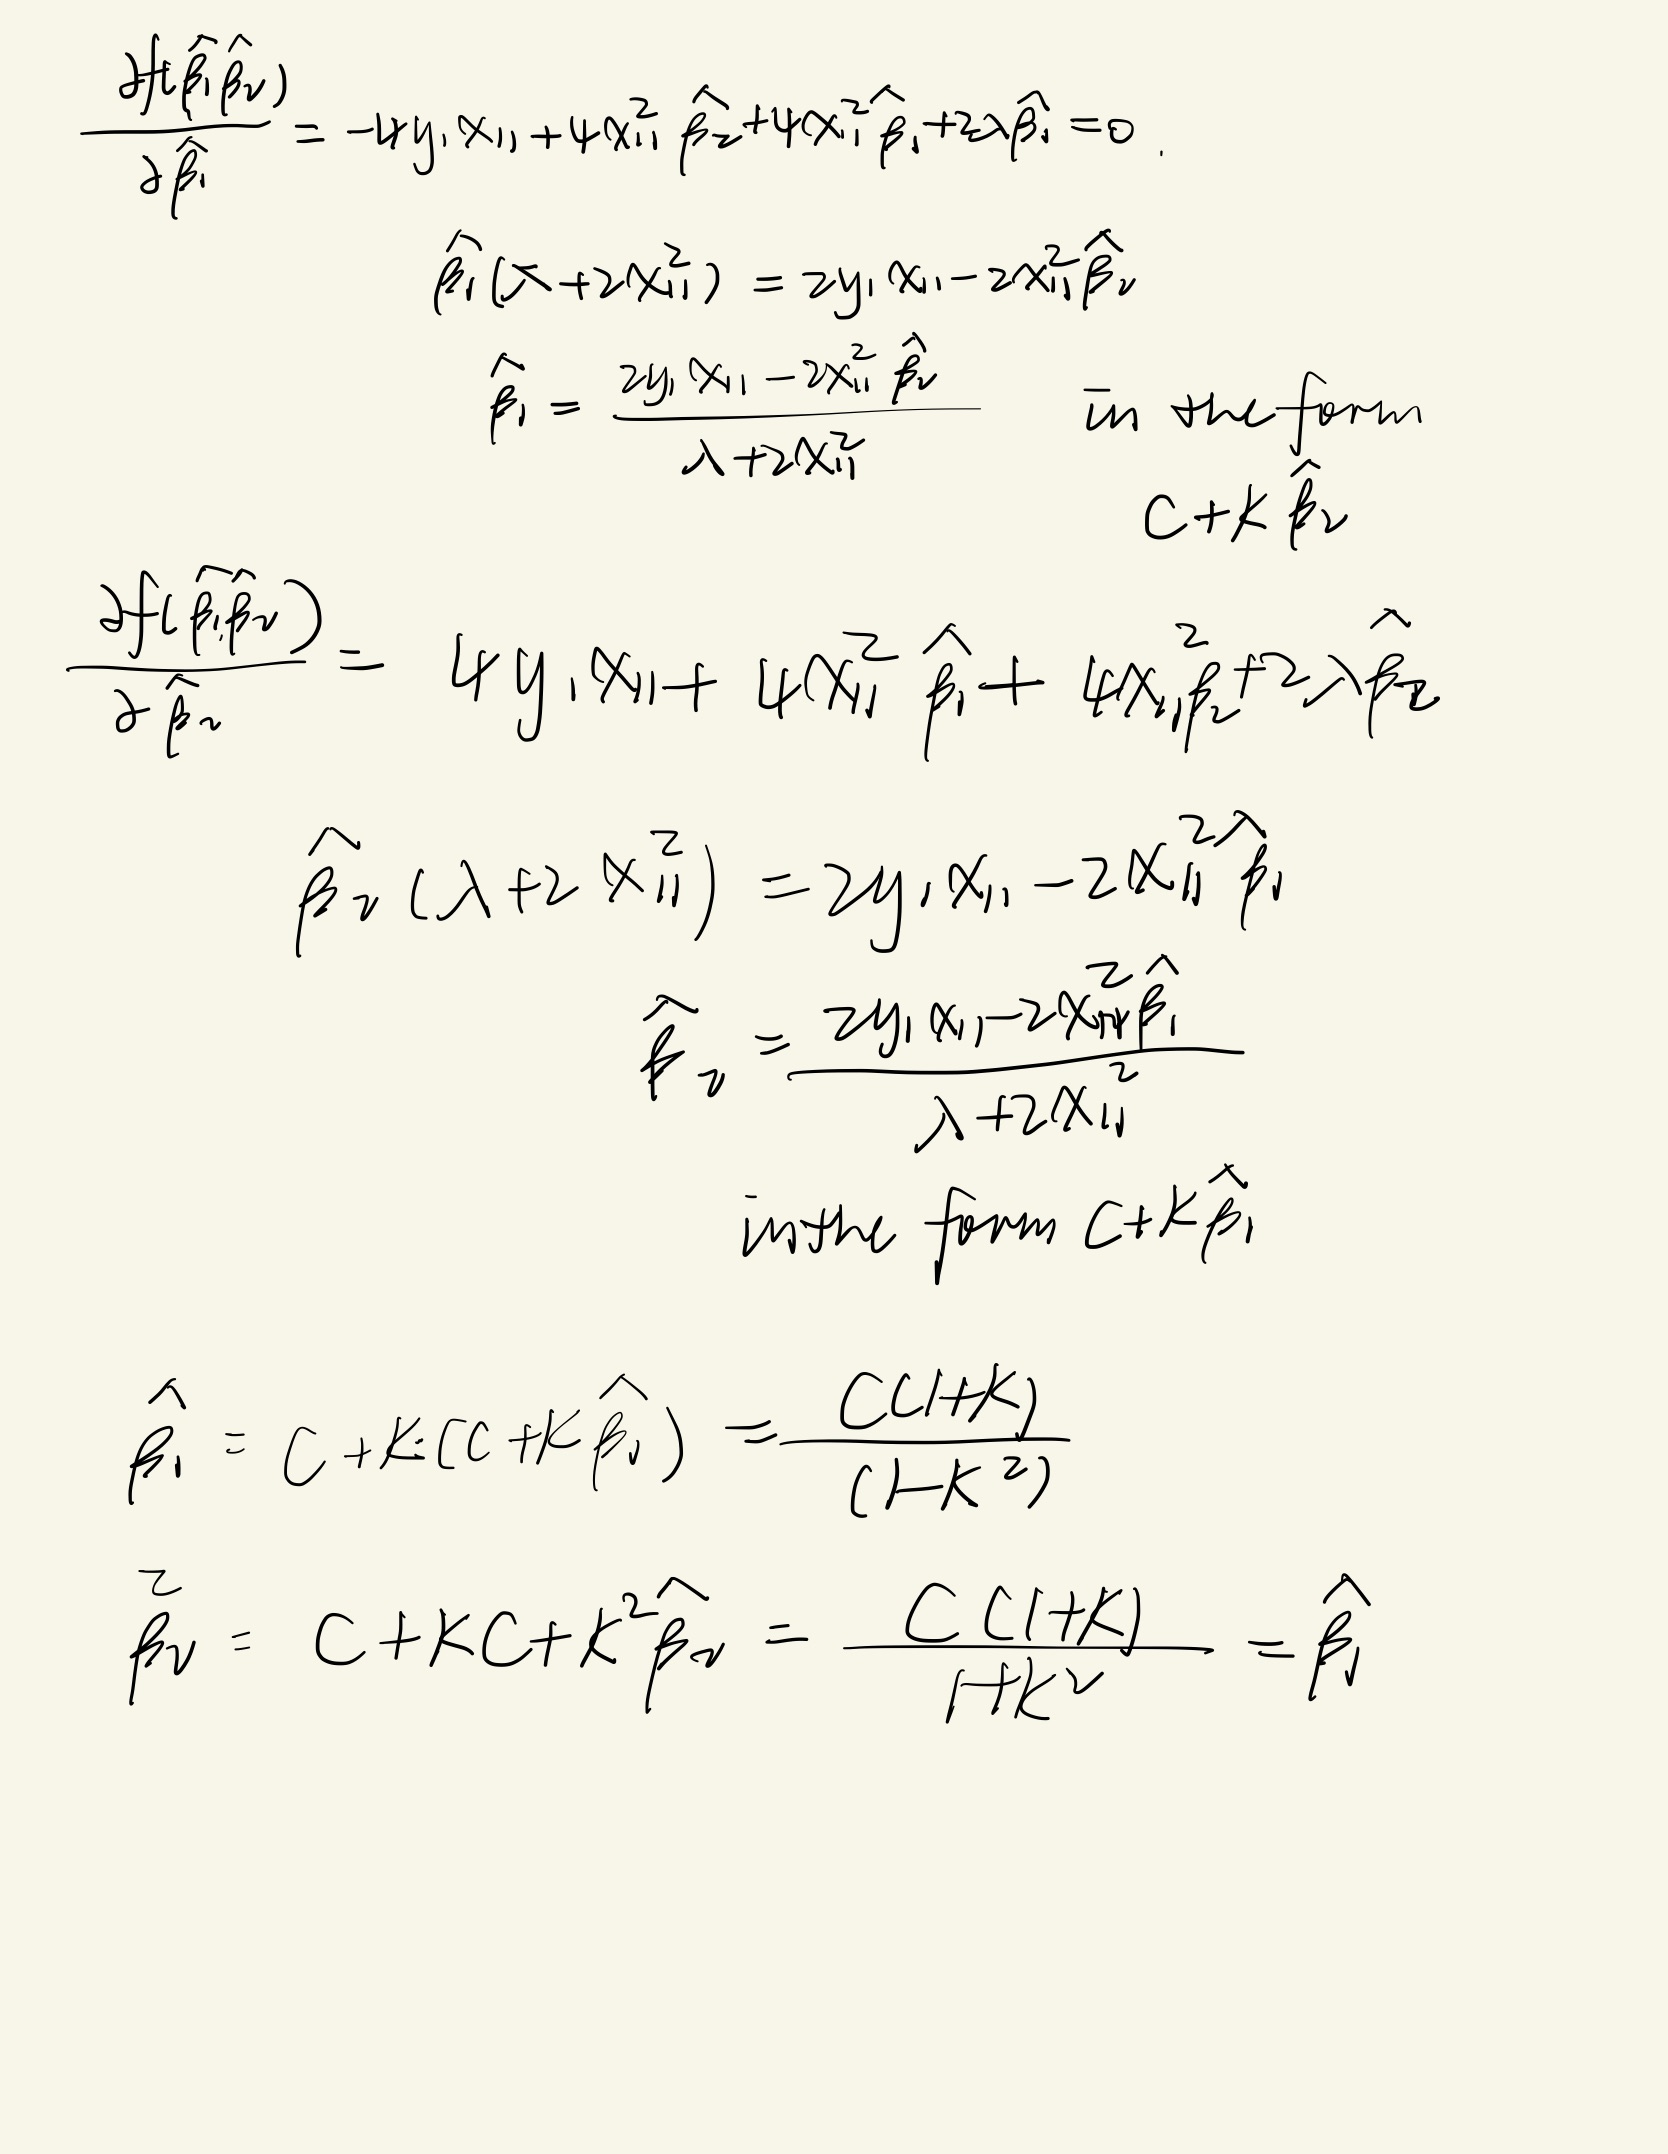 ∂f(β̂₁β̂₂)/∂β̂₁ = -4y₁x₁₁ + 4x₁₁² β̂₂ + 4x₁₁² β̂₁ + 2λβ̂₁ = 0.
β̂₁(λ+2x₁₁²) = 2y₁x₁₁ - 2x₁₁²β̂₂
β̂₁ = (2y₁x₁₁ - 2x₁₁² β̂₂)/(λ+2x₁₁²) in the form
C+K β̂₂
∂f(β̂₁,β̂₂)/∂β̂₂ = 4y₁x₁₁ + 4x₁₁² β̂₁ + 4x₁₁²β₂ + 2λβ̂₂
β̂₂(λ+2x₁₁²) = 2y₁x₁₁ - 2x₁₁²β̂₁
β̂₂ = (2y₁x₁₁ - 2x₁₁²β̂₁)/(λ+2x₁₁²)
in the form C+Kβ̂₁
β̂₁ = C+K·(C+Kβ̂₁) = C(1+K)/(1-K²)
β̂₂ = C+KC+K²β̂₂ = C(1+K)/(1+K²) = β̂₁